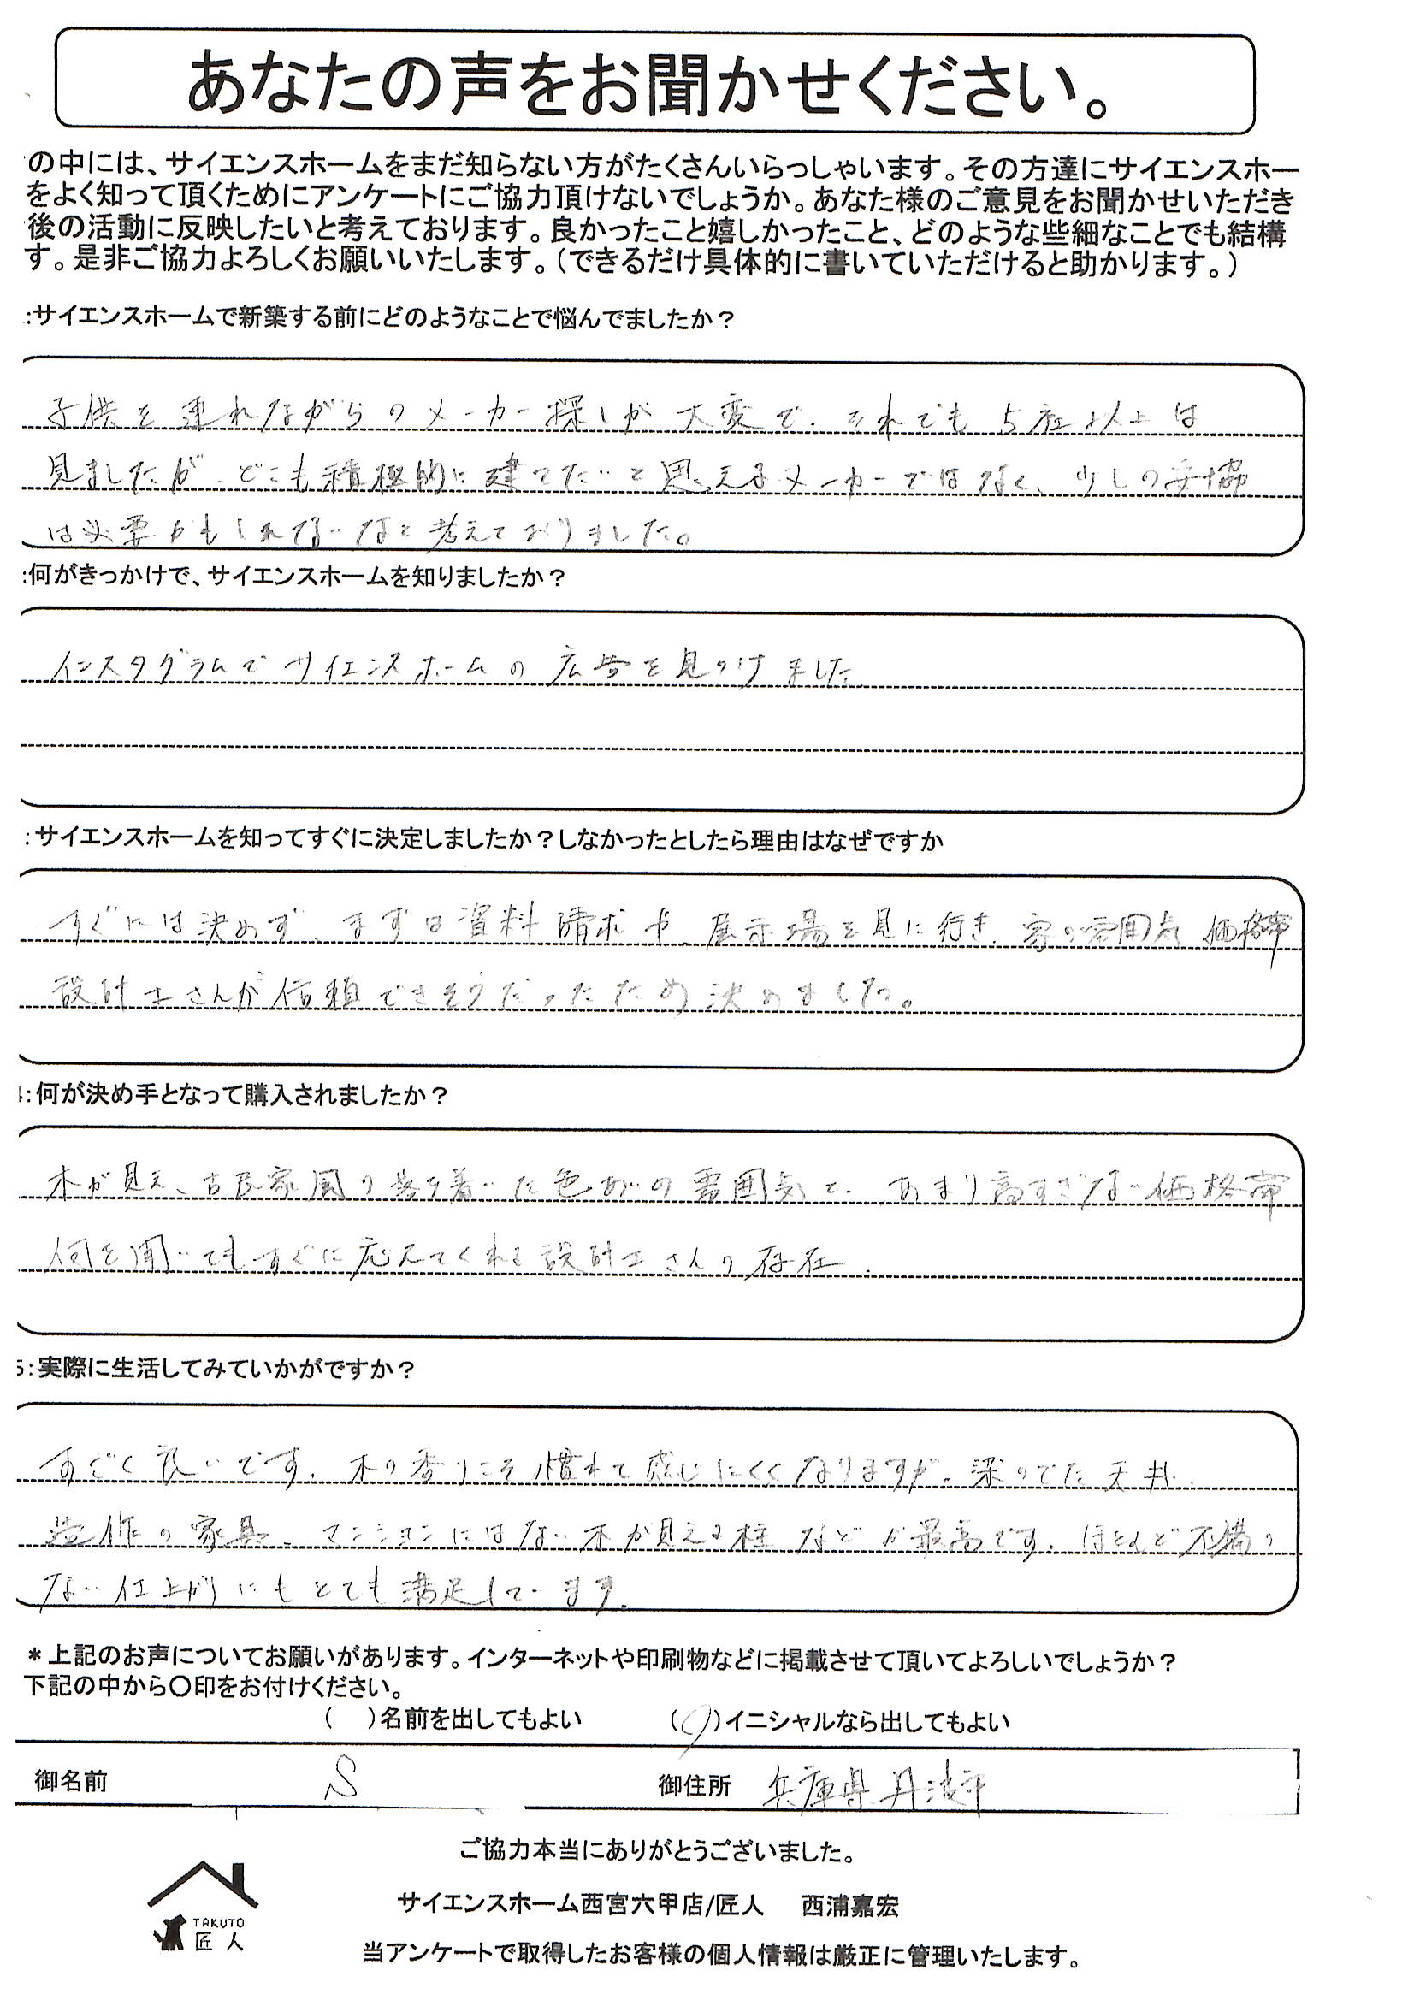 あなたの声をお聞かせください。
の中には、サイエンスホームをまだ知らない方がたくさんいらっしゃいます。その方達にサイエンスホー
をよく知って頂くためにアンケートにご協力頂けないでしょうか。あなた様のご意見をお聞かせいただき
後の活動に反映したいと考えております。良かったこと嬉しかったこと、どのような些細なことでも結構
す。是非ご協力よろしくお願いいたします。(できるだけ具体的に書いていただけると助かります。)
:サイエンスホームで新築する前にどのようなことで悩んでましたか？
子供を連れながらのメーカー探しが大変で、それでも5社以上は
見ましたが、どこも積極的に建てたいと思えるメーカーではなく、少しの妥協
は必要かもしれないなと考えておりました。
:何がきっかけで、サイエンスホームを知りましたか？
インスタグラムでサイエンスホームの広告を見つけました
:サイエンスホームを知ってすぐに決定しましたか？しなかったとしたら理由はなぜですか
すぐには決めず、まずは資料請求や、展示場を見に行き、家の雰囲気、価格帯
設計士さんが信頼できそうだったため決めました。
4:何が決め手となって購入されましたか？
木が見え、古民家風の落ち着いた色あいの雰囲気と、あまり高すぎない価格帯
何を聞いてもすぐに応えてくれる設計士さんの存在.
5:実際に生活してみていかがですか？
すごく良いです。木の香りこそ慣れて感じにくくなりますが、梁のでた天井、
造作の家具、マンションにはない木が見える柱などが最高です。ほとんど不満の
ない仕上がりにもとても満足しています。
*上記のお声についてお願いがあります。インターネットや印刷物などに掲載させて頂いてよろしいでしょうか？
下記の中から〇印をお付けください。
( )名前を出してもよい (〇)イニシャルなら出してもよい
御名前 S 御住所 兵庫県丹波市
ご協力本当にありがとうございました。
サイエンスホーム西宮六甲店/匠人 西浦嘉宏
TAKUTO
匠人
当アンケートで取得したお客様の個人情報は厳正に管理いたします。